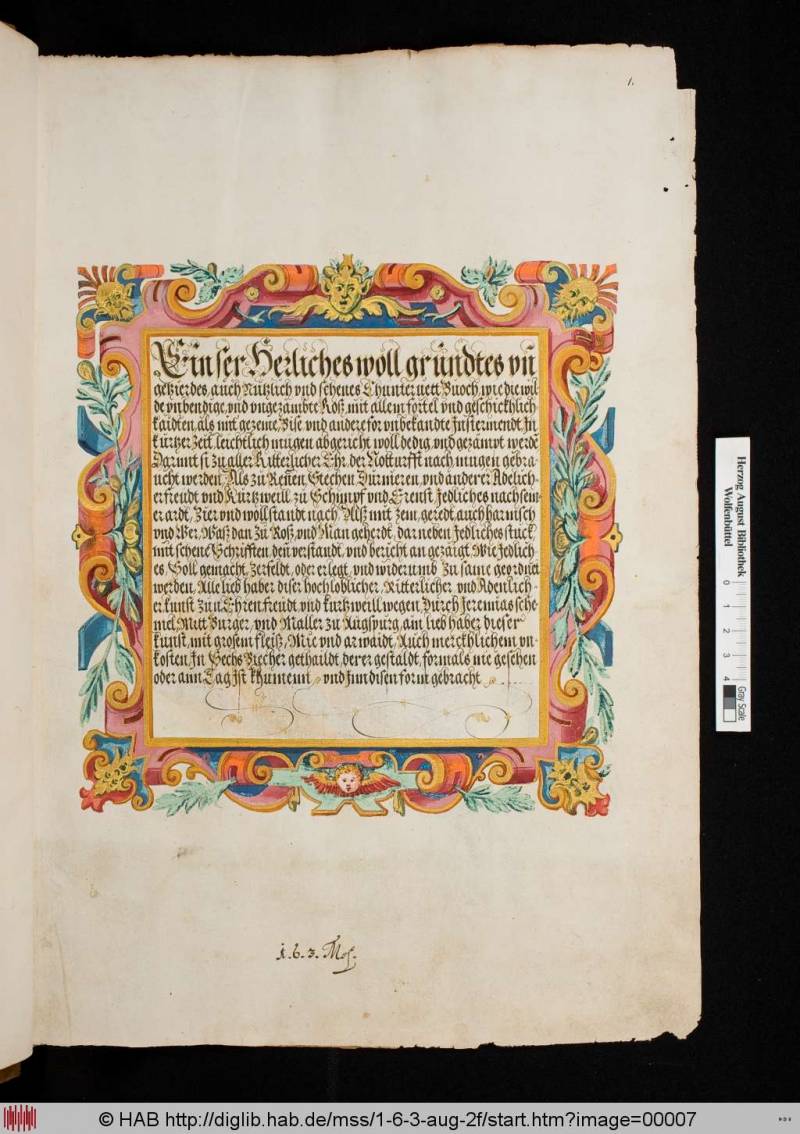 1.
Ein ser Herliches woll gründtes vn̄
getzierdes, auch Nutzlich vnd schenes Chunter vett Buoch, wie die wil
de vnbendige, vnd vngezambte Roß, mit allem fortel vnd geschickhlich
kaidten, als mit gezeme, Bise vnd andere for vnbekandte Instermendt, In
kürtzer Zeit, leichtlich mugen abgericht woll dedig, vnd gezämpt werdē
Darmit si zu aller Ritterlicher Ehr, der Notturfft nach mugen gebra
ucht werden, Als zu Reñen Stechen Durnieren, vnd anderer Adelich
erfreudt vnd Kürtzweill, zu Schimpf vnd Erenst, Jedliches nach sein
er ardt, Zier vnd wollstandt nach, Alß mit zem, geredt, auch harnisch
vnd Wer, Waß dan zu Roß, vnd Man geherdt, dar neben Jedliches stuck
mit schene Schrifften, den verstandt, vnd bericht an gezaigt, Wie Jedlich-
es, Soll gemacht, Zerfeldt, oder erlegt, vnd widerumb Zu same geordnet
werden, Alle lich haber diser hochloblicher, Ritterlicher vnd Adenlich-
er kunst zun Ehren freudt vnd kurtzweill wegen, Durch Jeremias sche
mel, Mitt Burger, vnd Maller zu Augspurg, ain lieb haber dieser
kunst, mit grosem fleiß, Mie vnd arwaidt, Auch merckhlichem vn-
kosten, In Sechs Biecher gethaildt, derer gestaldt, formals nie gesehen
oder ann Tag Ist khumenn, vnd Inn disen form gebracht
1. 6. 3. Msf.
Herzog August Bibliothek
Wolfenbüttel
0 1 2 3 4
Gray Scale
© HAB http://diglib.hab.de/mss/1-6-3-aug-2f/start.htm?image=00007